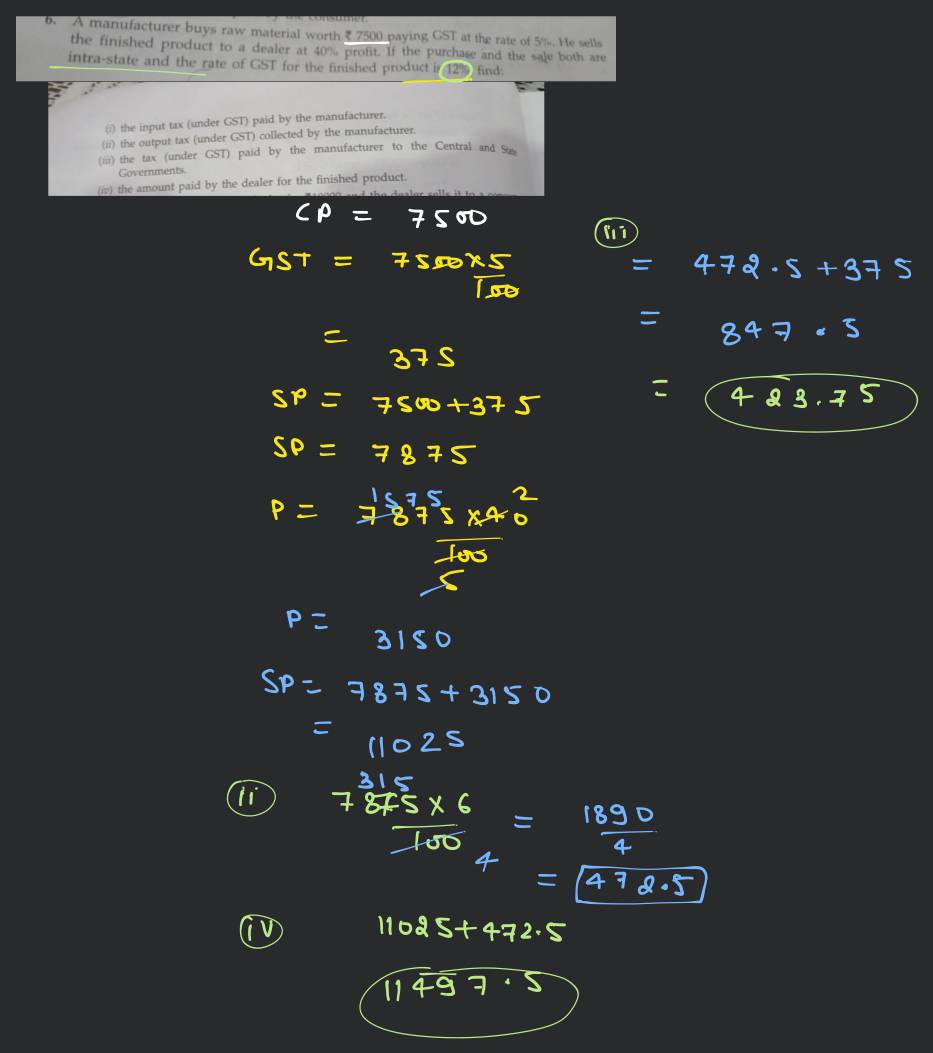 by the consumer.
6. A manufacturer buys raw material worth ₹ 7500 paying GST at the rate of 5%. He sells
the finished product to a dealer at 40% profit. If the purchase and the sale both are
intra-state and the rate of GST for the finished product is 12%, find:
(i) the input tax (under GST) paid by the manufacturer.
(ii) the output tax (under GST) collected by the manufacturer.
(iii) the tax (under GST) paid by the manufacturer to the Central and State
Governments.
(iv) the amount paid by the dealer for the finished product.
and the dealer sells it to a
CP = 7500
GST = 7500x5
100
=
375
SP = 7500+375
SP = 7875
1575 2
P = 7875 x40
100
5
P =
3150
SP = 7875+3150
=
11025
315
(ii) 7875 x 6 = 1890
100 4
4
= 472.5
(iv) 11025+472.5
11497.5
(iii)
= 472.5+375
= 847.5
= 423.75